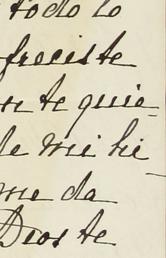 todo lo
freciste
n te quie-
de mi hi-
me da
Dios te